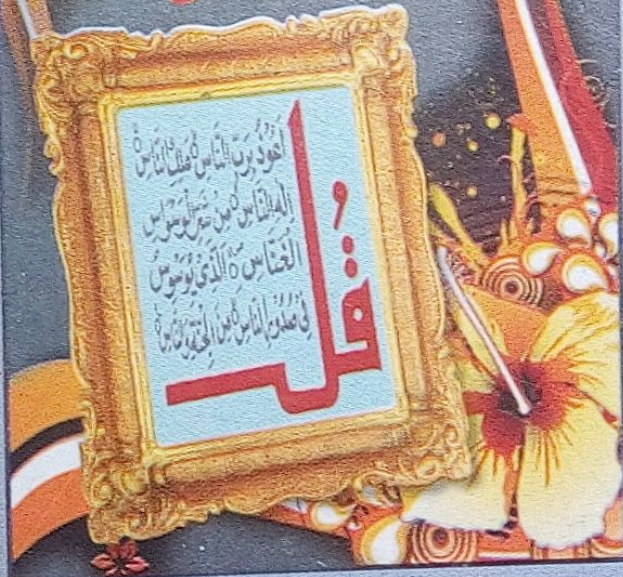 قُل
اَعُوْذُ بِرَبِّ النَّاسِ مَلِكِ النَّاسِ
اِلٰهِ النَّاسِ مِنْ شَرِّ الْوَسْوَاسِ
الْخَنَّاسِ الَّذِیْ یُوَسْوِسُ
فِیْ صُدُوْرِ النَّاسِ مِنَ الْجِنَّةِ وَالنَّاسِ